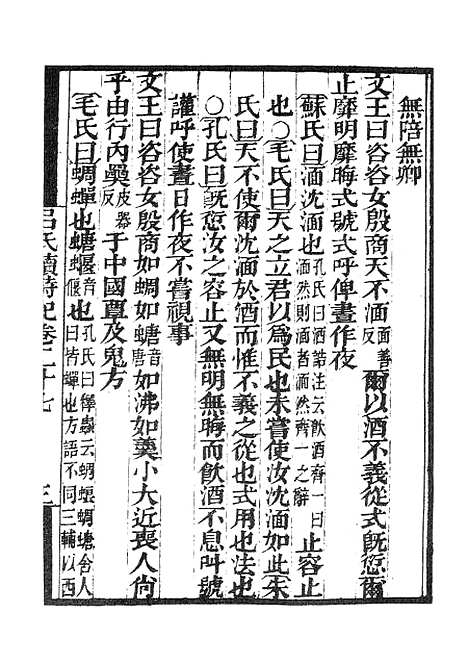 無陪無卿
文王曰咨咨女殷商天不湎面善反爾以酒不義從式旣愆爾
止靡明靡晦式號式呼俾晝作夜
蘇氏曰湎沈湎也孔氏曰酒誥注云飲酒齊一曰湎然則湎者湎然齊一之辭止容止
也○毛氏曰天之立君以爲民也未嘗使汝沈湎如此朱
氏曰天不使爾沈湎於酒而惟不義之從也式用也法也
○孔氏曰旣愆汝之容止又無明無晦而飲酒不息叫號
讙呼使晝日作夜不嘗視事
文王曰咨咨女殷商如蜩如螗音唐如沸如羹小大近喪人尚
乎由行內奰皮器反于中國覃及鬼方
毛氏曰蜩蟬也螗蝘音偃也孔氏曰釋蟲云蜩蜋蜩螗舍人曰皆蟬也方語不同三輔以西
呂氏讀詩記卷二十七 三